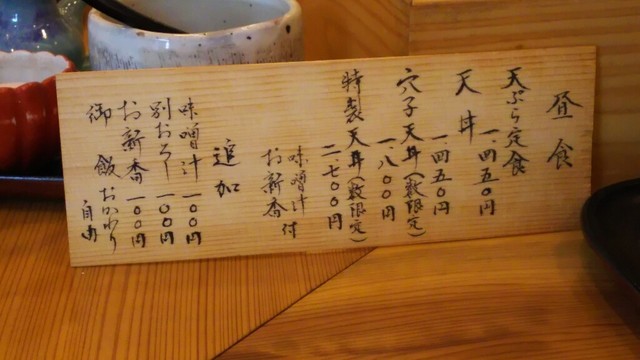 昼食
天ぷら定食
一、四五〇円
天丼
一、四五〇円
穴子天丼(数限定)
一、八〇〇円
特製天丼(数限定)
二、七〇〇円
味噌汁
お新香
付
追加
味噌汁 一〇〇円
別おろし 一〇〇円
お新香 一〇〇円
御飯おかわり
自由